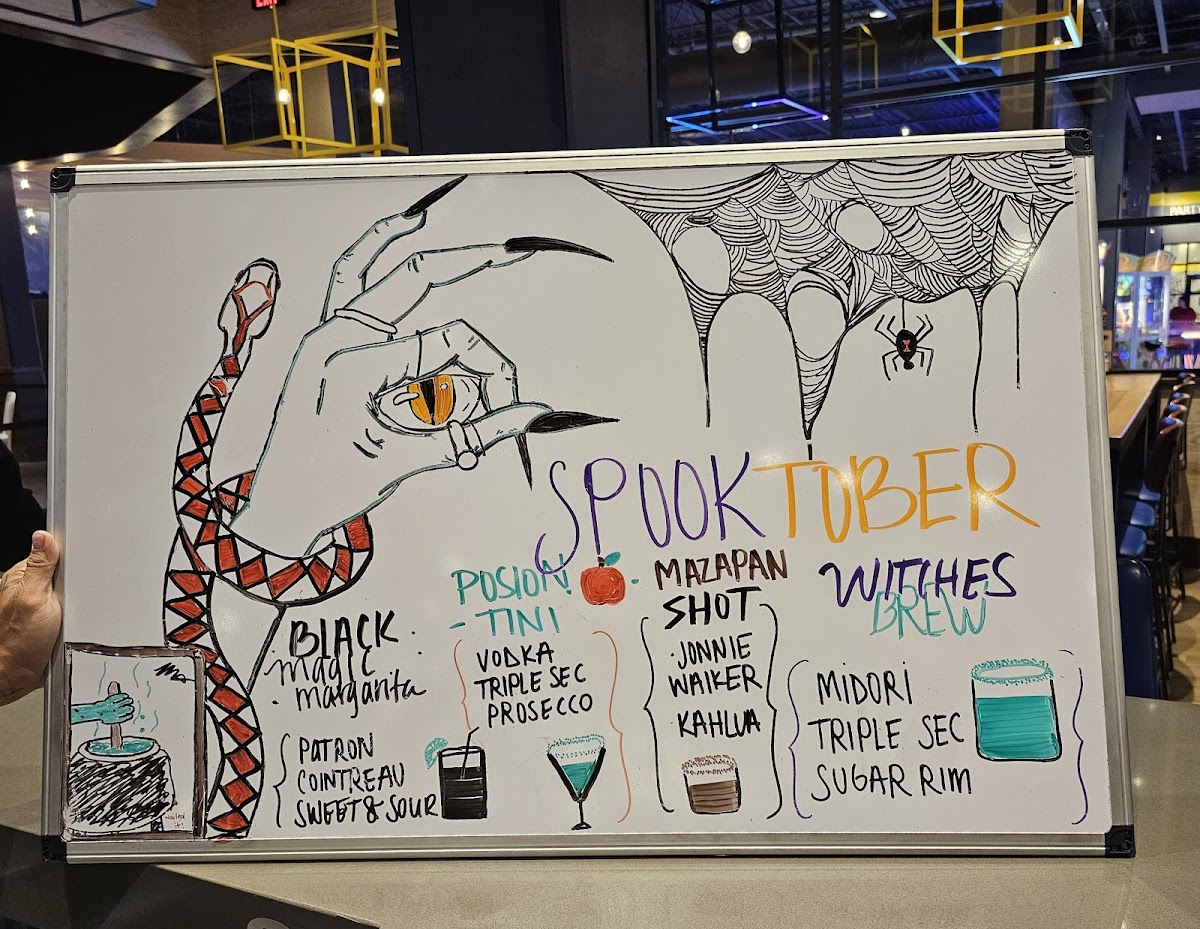 EXIT
PARTY
SPOOKTOBER
BLACK
magic
margarita
PATRON
COINTREAU
SWEET & SOUR
POSION
-TINI
VODKA
TRIPLE SEC
PROSECCO
MAZAPAN
SHOT
·JONNIE
WAIKER
·KAHLUA
WITCHES
BREW
MIDORI
TRIPLE SEC
SUGAR RIM
nailed
it!